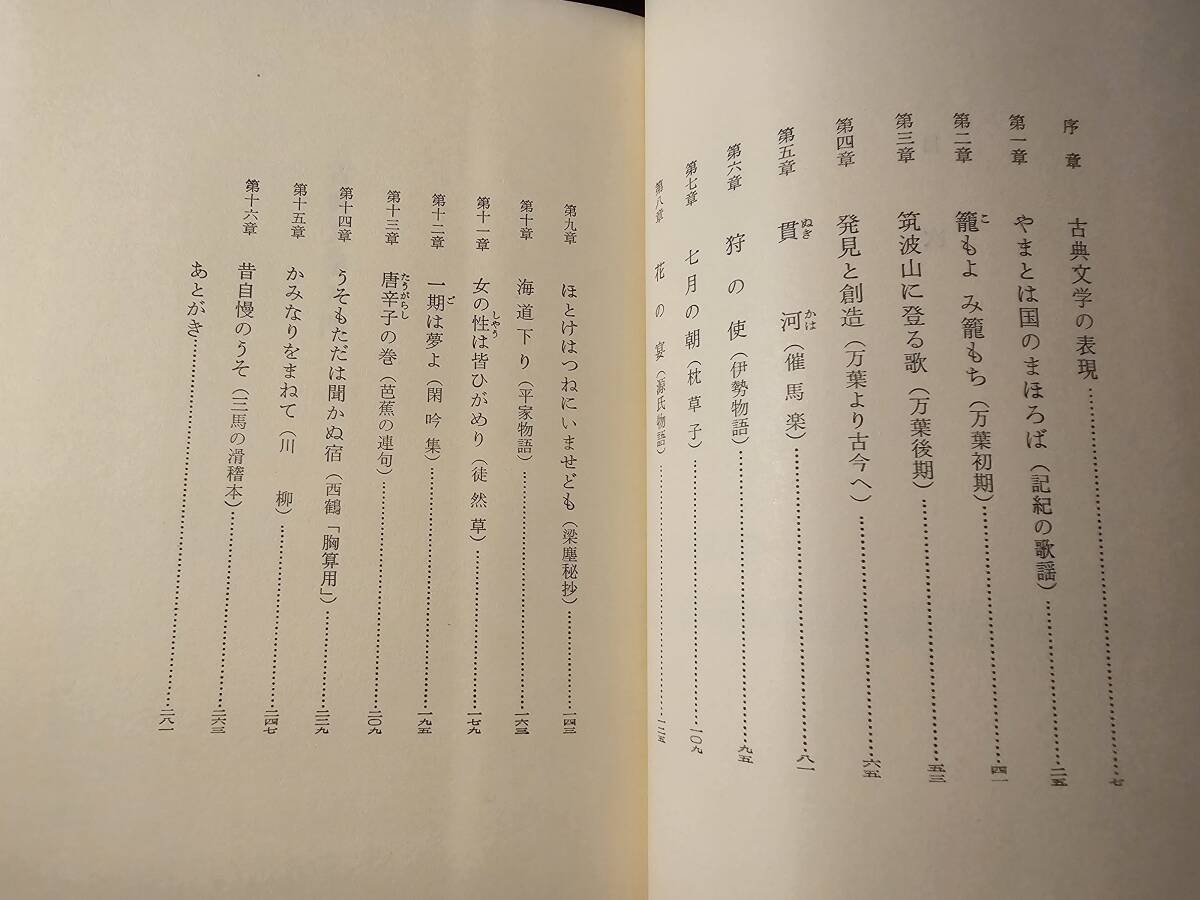 序章 古典文学の表現……七
第一章 やまとは国のまほろば（記紀の歌謡）……二五
第二章 籠もよ み籠もち（万葉初期）……四一
第三章 筑波山に登る歌（万葉後期）……五三
第四章 発見と創造（万葉より古今へ）……六五
第五章 貫河（催馬楽）……八一
第六章 狩の使（伊勢物語）……九五
第七章 七月の朝（枕草子）……一〇九
第八章 花の宴（源氏物語）……一二五
第九章 ほとけはつねにいませども（梁塵秘抄）……一四三
第十章 海道下り（平家物語）……一六三
第十一章 女の性は皆ひがめり（徒然草）……一七九
第十二章 一期は夢よ（閑吟集）……一九五
第十三章 唐辛子の巻（芭蕉の連句）……二〇九
第十四章 うそもただは聞かぬ宿（西鶴「胸算用」）……二三九
第十五章 かみなりをまねて（川柳）……二四七
第十六章 昔自慢のうそ（三馬の滑稽本）……二六三
あとがき……二八一